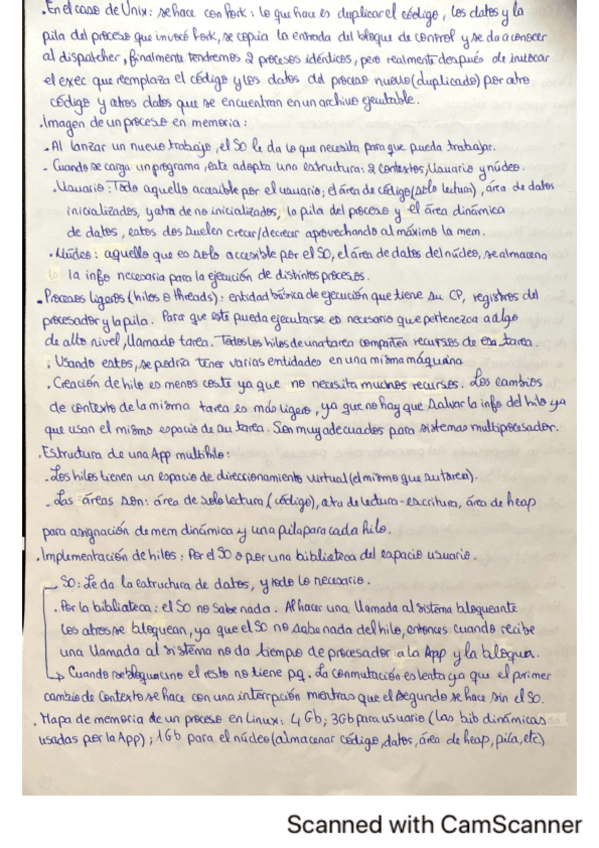 . En el caso de Unix: se hace con fork: lo que hace es duplicar el código, los datos y la
pila del proceso que invocó fork, se copia la entrada del bloque de control y se da a conocer
al dispatcher, finalmente tendremos 2 procesos idénticos, pero realmente después de invocar
el exec que reemplaza el código y los datos del proceso nuevo (duplicado) por otro
código y otros datos que se encuentran en un archivo ejecutable.
. Imagen de un proceso en memoria:
- Al lanzar un nuevo trabajo, el SO le da lo que necesita para que pueda trabajar.
- Cuando se carga un programa, este adopta una estructura: 2 contextos, Usuario y núcleo.
. Usuario: Todo aquello accesible por el usuario; el área de código (solo lectura), área de datos
inicializados, y otra de no inicializados, la pila del proceso y el área dinámica
de datos, estos dos suelen crecer/decrecer aprovechando al máximo la mem.
. Núcleo: aquello que es solo accesible por el SO, el área de datos del núcleo, se almacena
la info necesaria para la ejecución de distintos procesos.
. Procesos ligeros (hilos o threads): entidad básica de ejecución que tiene su CP, registros del
procesador y la pila. Para que este pueda ejecutarse es necesario que pertenezca a algo
de alto nivel, llamado tarea. Todos los hilos de una tarea comparten recursos de esa tarea.
. Usando estos, se podría tener varias entidades en una misma máquina
. Creación de hilo es menos coste ya que no necesita muchos recursos. Los cambios
de contexto de la misma tarea es más ligero, ya que no hay que salvar la info del hilo ya
que usan el mismo espacio de su tarea. Son muy adecuados para sistemas multiprocesador.
. Estructura de una App multihilo:
- Los hilos tienen un espacio de direccionamiento virtual (el mismo que su tarea).
- Las áreas son: área de solo lectura (código), otra de lectura-escritura, área de heap
para asignación de mem dinámica y una pila para cada hilo.
. Implementación de hilos: Por el SO o por una biblioteca del espacio usuario.
SO: Le da la estructura de datos, y todo lo necesario.
. Por la biblioteca: el SO no sabe nada. Al hacer una llamada al sistema bloqueante
los otros se bloquean, ya que el SO no sabe nada del hilo, entonces cuando recibe
una llamada al sistema no da tiempo de procesador a la App y la bloquea.
Cuando se bloquea uno el resto no tiene pq. La conmutación es lenta ya que el primer
cambio de contexto se hace con una interrpción mientras que el segundo se hace sin el SO.
. Mapa de memoria de un proceso en Linux: 4 Gb; 3Gb para usuario (las bib dinámicas
usadas por la App); 1Gb para el núcleo (almacenar código, datos, área de heap, pila, etc)
Scanned with CamScanner